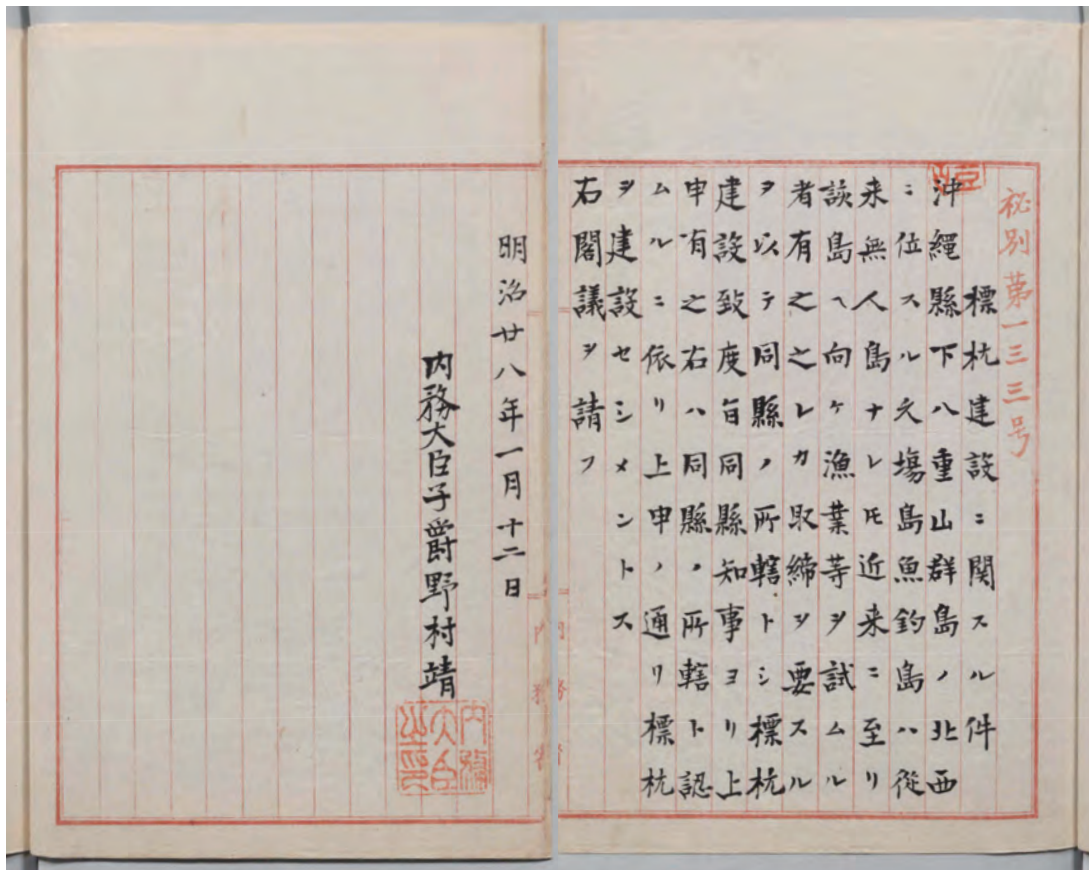 秘別第一三三号
標杭建設ニ関スル件
沖繩縣下八重山群島ノ北西
ニ位スル久塲島魚釣島ハ従
来無人島ナレ𪜈近来ニ至リ
該島ヘ向ケ漁業等ヲ試ムル
者有之之レカ取締ヲ要スル
ヲ以テ同縣ノ所轄トシ標杭
建設致度旨同縣知事ヨリ上
申有之右ハ同縣ノ所轄ト認
ムルニ依リ上申ノ通リ標杭
ヲ建設セシメントス
右閣議ヲ請フ
明治廿八年一月十二日
内務大臣子爵野村靖
内務大臣之印
内務省